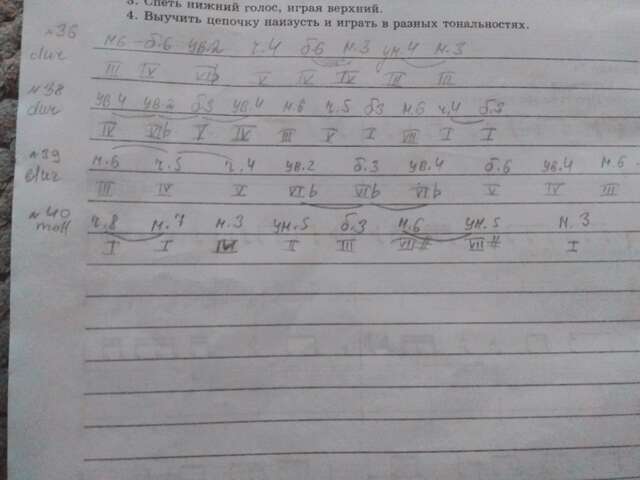 3. Спеть нижний голос, играя верхний.
4. Выучить цепочку наизусть и играть в разных тональностях.
№36 м.6 б.6 ув.2 ч.4 б6 м.3 ум.4 м.3
dur III IV VIb V IV IV III III
№38 ув.4 ув.2 б.3 ув.4 м.6 ч.5 б3 м.6 ч.4 б.3
dur IV VIb V IV III V I VII I I
№39 м.6 ч.5 ч.4 ув.2 б.3 ув.4 б.6 ув.4 м.6
dur III IV V VIb VIb VIb V IV III
№40 ч.8 м.7 м.3 ум.5 б.3 м.6 ум.5 м.3
moll I I IV II III VII# VII# I